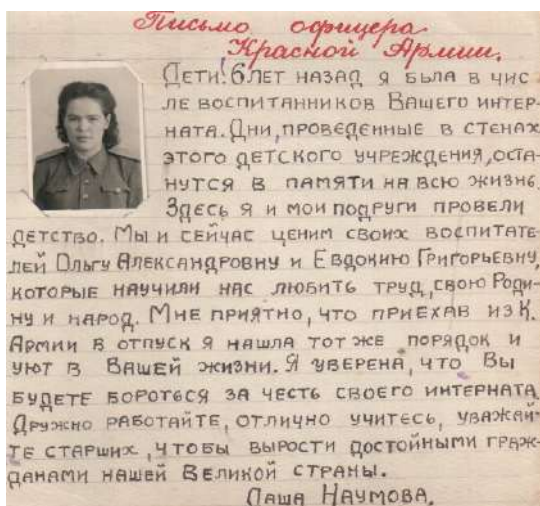 Письмо офицера
Красной Армии.
Дети! 6 лет назад я была в чис
ле воспитанников Вашего интер-
ната. Дни, проведенные в стенах
этого детского учреждения, оста-
нутся в памяти на всю жизнь.
Здесь я и мои подруги провели
детство. Мы и сейчас ценим своих воспитате-
лей Ольгу Александровну и Евдокию Григорьевну,
которые научили нас любить труд, свою Роди-
ну и народ. Мне приятно, что приехав из К.
Армии в отпуск я нашла тот же порядок и
уют в Вашей жизни. Я уверена, что Вы
будете бороться за честь своего интерната
Дружно работайте, отлично учитесь, уважай-
те старших, чтобы вырости достойными граж-
данами нашей Великой страны.
Паша Наумова.